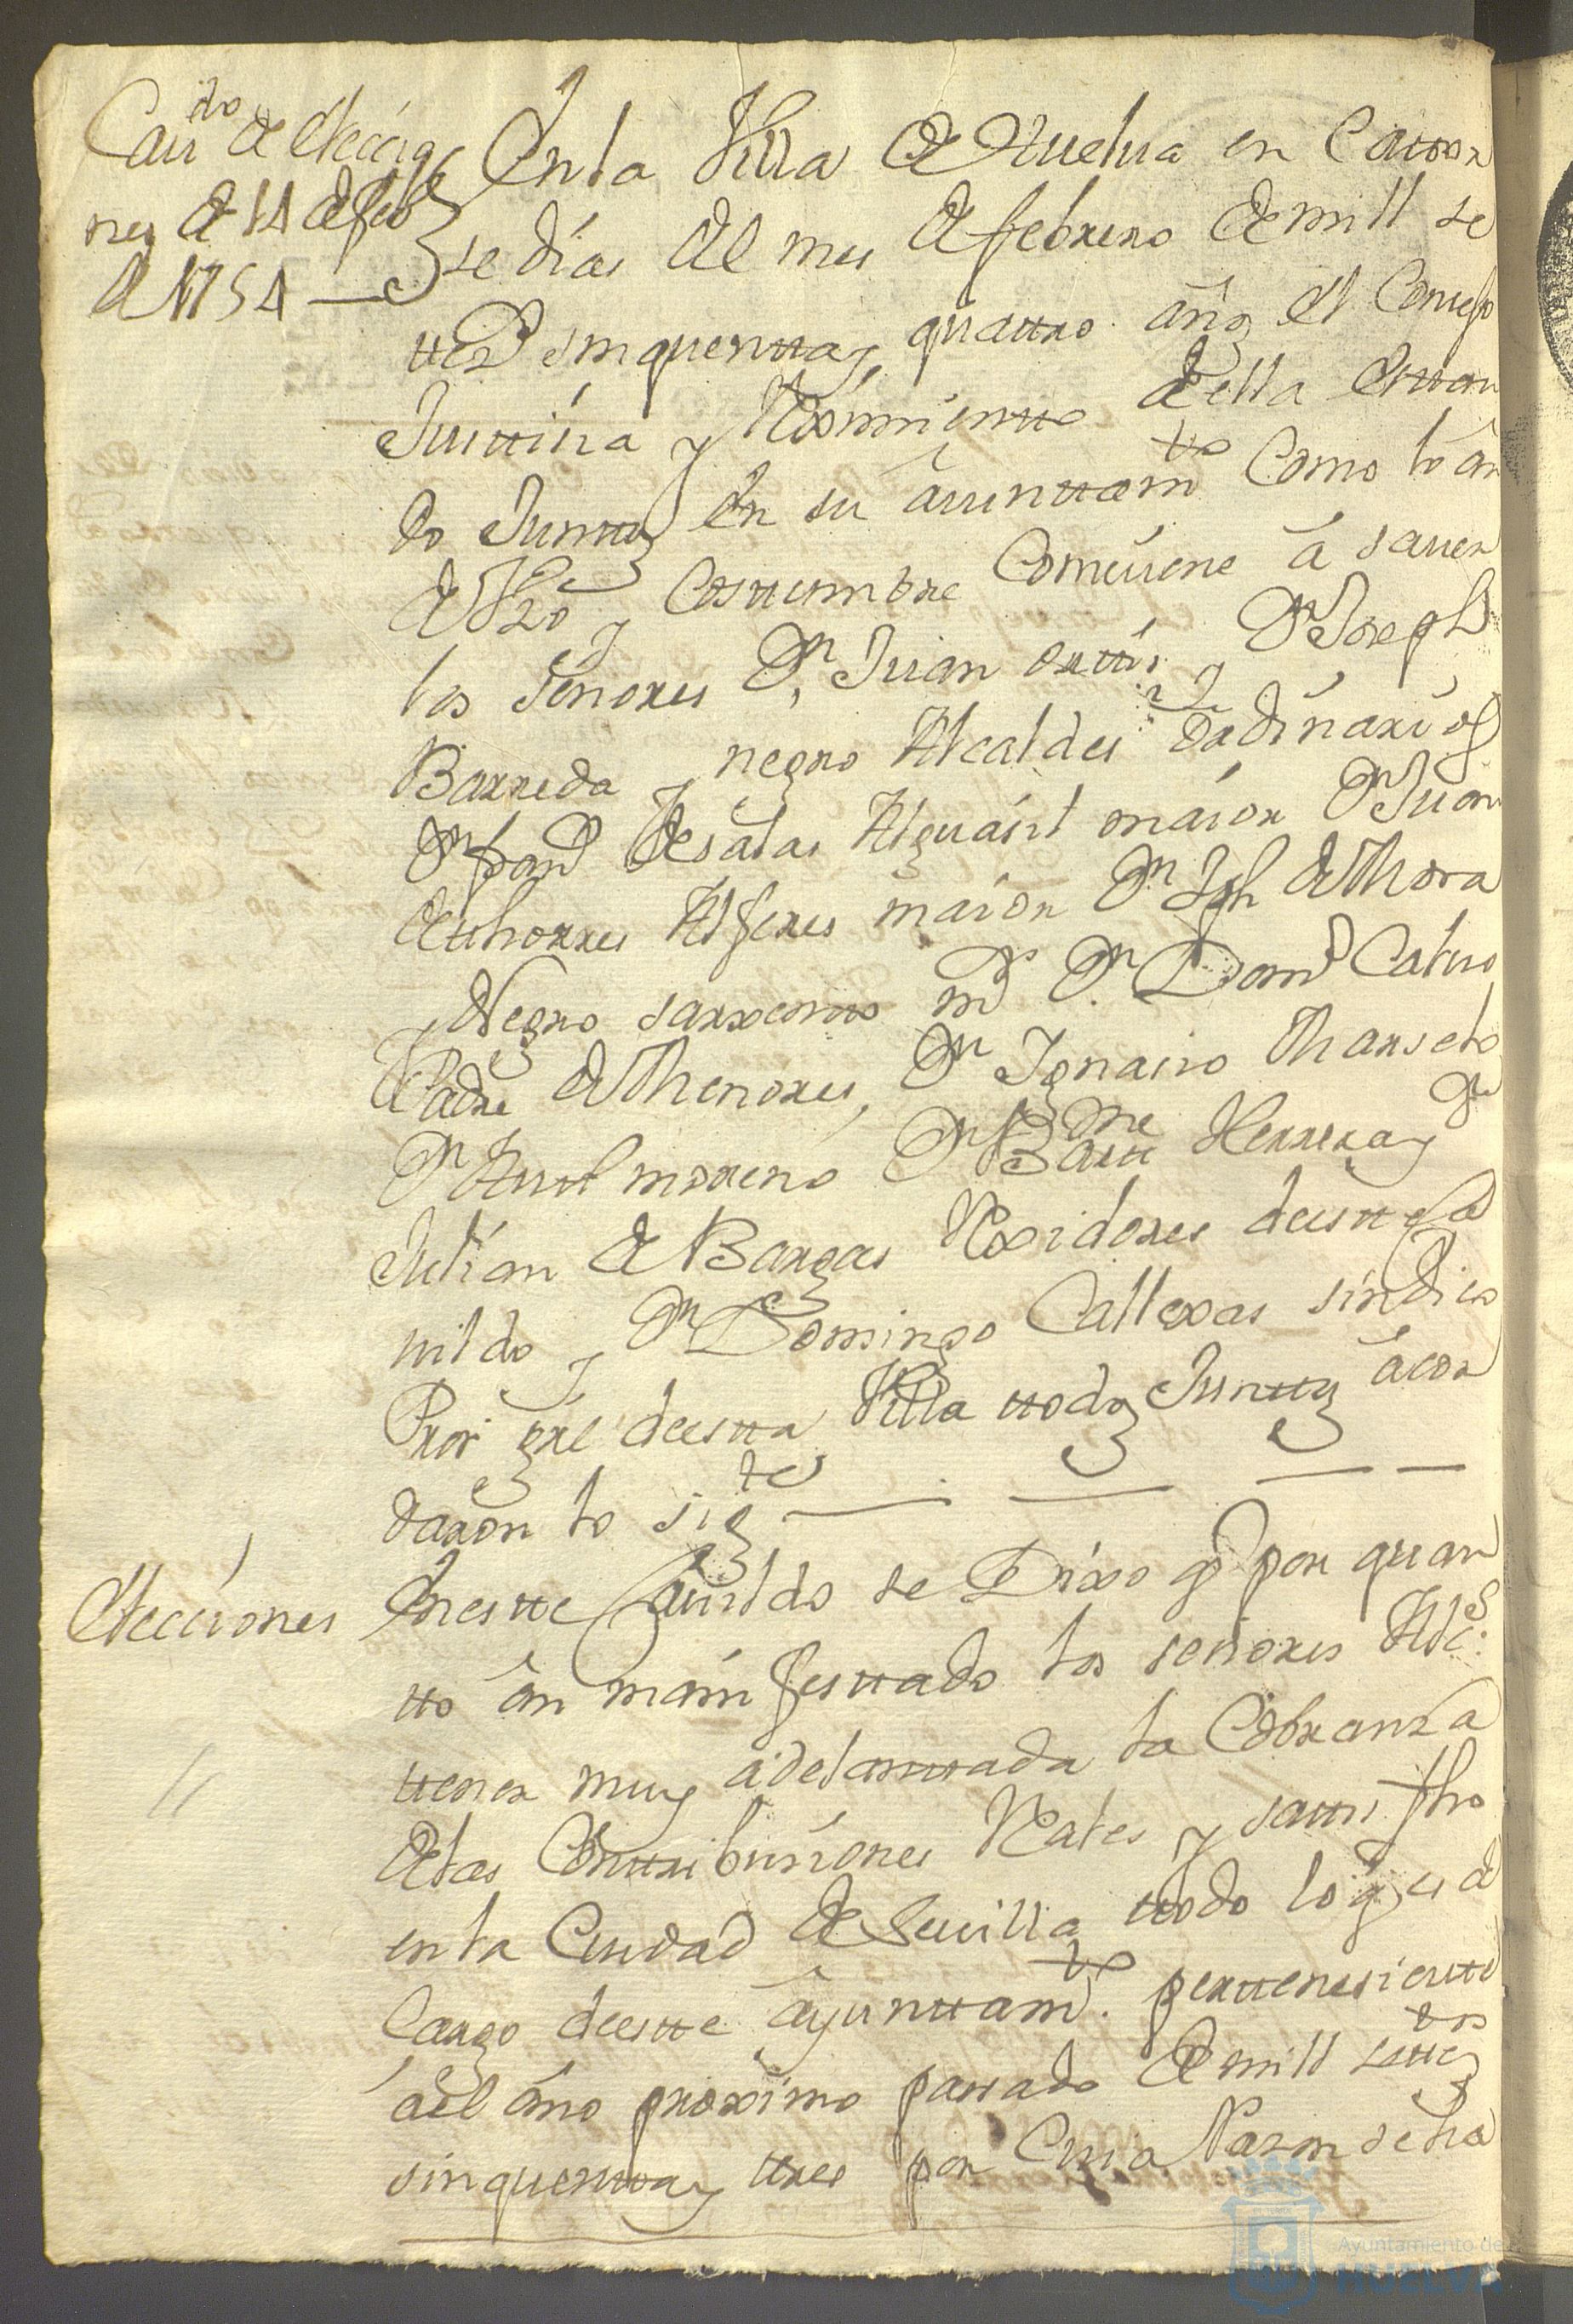 Cavdo de eleccio
nes de 14 de febo
de 1754
En la Villa de Huelva en Cator
se días del mes de febrero de mill se
ttesd sinquentta y quattro años el Consejo
Justtisia y Reximientto de ella esttan
do Junttos en su aiunttamto Como lo an
de Uso y Costtumbre Combiene â saver
los señores Dn Juan orttis y Dn Joseph
Barreda y negro Alcaldes ordinarios
Dn Desalas Alguásil maior Dn Juan
de thorres Alferes maior Dn Jph de Mora
y Negro sarxentto mr Dn Domo Calvo
Padre de Menores, Dn Ignasio Marselo
Dn moreno Dn Bartme Herrera y Dn
Julián de Bargas Rexidores deestte Ca
vildo y Dn Domingo Callexas síndico
Pror gral deestta Villa ttodos Junttos âcor
daron lo sigtes
Elecciones
Enestte Cavildo se Dixo qe por quan
tto ân manifesttado los señores Alces
ttener muy adelanttada la Cobranza
de las Conttribusiones Rales y sattisfho
en la Ciudad de Sevilla ttodo lo q es de
Cargo deestte âyunttamto perttenesientte
âel âno proximo passado de mill settesos
sinquentta y ttres por Cuia Razon se ha
Ayuntamiento de
HUELVA